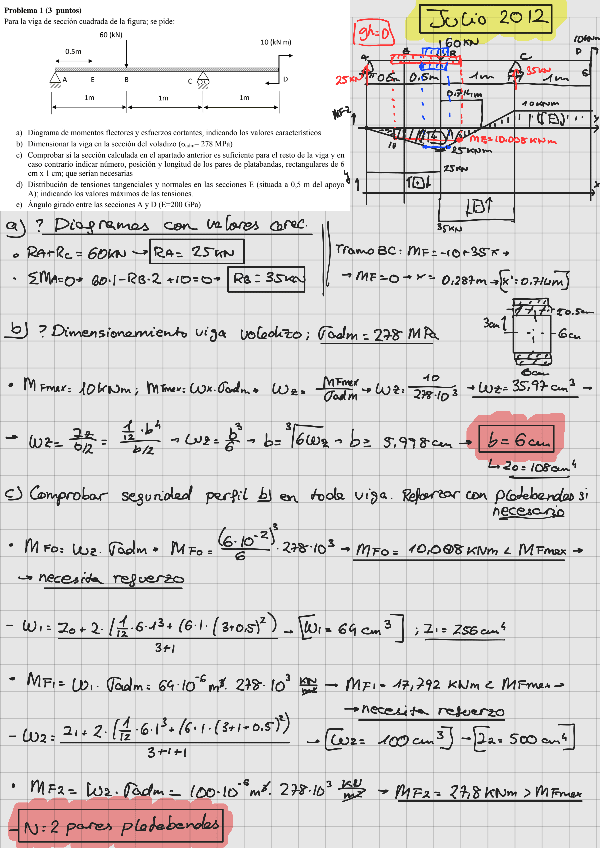 Problema 1 (3 puntos)
Para la viga de sección cuadrada de la figura; se pide:
60 (kN)
10 (kN m)
0.5m
A
E
B
C
D
1m
1m
1m
a) Diagrama de momentos flectores y esfuerzos cortantes, indicando los valores característicos
b) Dimensionar la viga en la sección del voladizo (σadm= 278 MPa)
c) Comprobar si la sección calculada en el apartado anterior es suficiente para el resto de la viga y en
caso contrario indicar número, posición y longitud de los pares de platabandas, rectangulares de 6
cm x 1 cm; que serían necesarias
d) Distribución de tensiones tangenciales y normales en las secciones E (situada a 0,5 m del apoyo
A); indicando los valores máximos de las tensiones
e) Ángulo girado entre las secciones A y D (E=200 GPa)
Julio 2012
gh=0
60KN
10KNm
C
D
25KN
35KN
0.5m
0.5m
1m
1m
0.714m
10KNm
MF-Z
ME=10.008KNm
25KNm
25KN
35KN
a) ? Diagramas con valores carac.
• RA+RC = 60KN → RA = 25KN
• ΣMA=0→ 60·1-RB·2 +10=0→ RB=35KN
Tramo BC: MF=-10+35x→
→ MF=0→x= 0,287m→[x'=0.714m]
b) ? Dimensionamiento viga voladizo; σadm = 278 MPa
0.5cm
3cm
6cm
6cm
• MFmax= 10KNm; MFmax= Wz·σadm→ Wz= MFmax/σadm → Wz= 10/278·10³ → Wz= 35,97cm³ →
→ Wz= Iz/b/2 = 1/12·b⁴/b/2 → Wz= b³/6 → b= ³√6Wz → b= 5,998cm → b=6cm
↳ I0=108cm⁴
c) Comprobar seguridad perfil b) en toda viga. Reforzar con platabandas si
necesario
• MF0= Wz·σadm→ MF0= (6·10⁻²)³/6 ·278·10³ → MF0= 10,008KNm < MFmax →
→ necesita refuerzo
- W1= I0+2·(1/12·6·1³+(6·1·(3+0,5)²)/3+1 → [W1=64cm³] ; I1=256cm⁴
• MF1= W1·σadm= 64·10⁻⁶m³·278·10³ KN/m² → MF1= 17,792 KNm < MFmax→
→necesita refuerzo
- W2= I1+2·(1/12·6·1³+(6·1·(3+1+0.5)²)/3+1+1 → [W2= 100cm³] →[I2=500cm⁴]
• MF2= W2·σadm= 100·10⁻⁶m³·278·10³ KN/m² → MF2= 27,8KNm > MFmax
- N=2 pares platabandas